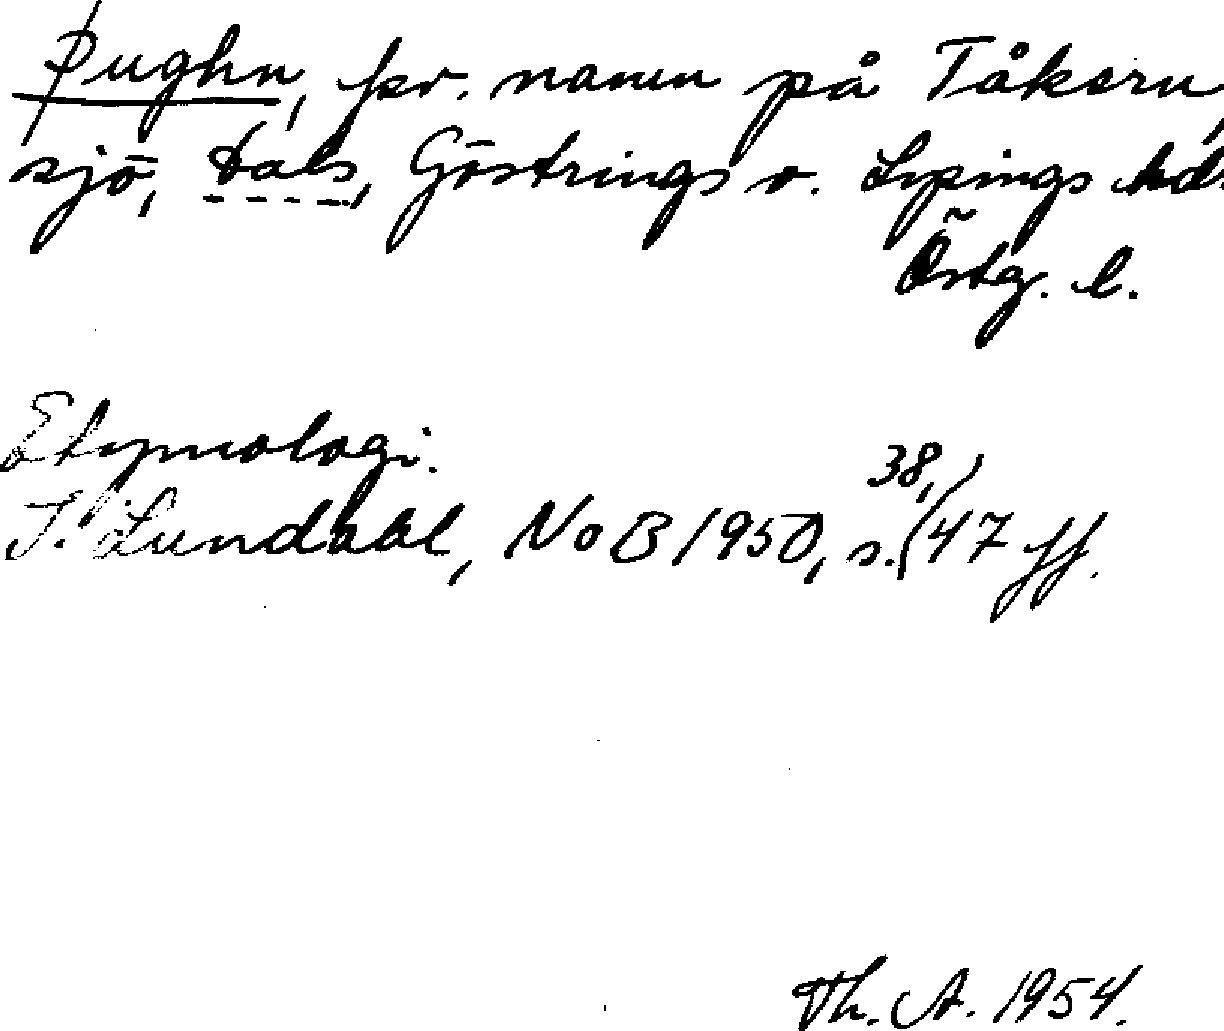 Þughn, fsv. namn på Tåkern,
sjö, Dals, Göstrings o. Lysings hdr
Östg. l.
Etymologi.
I. Lundahl, NoB 1950, s. (38,) 47 ff.
Th. A. 1954.